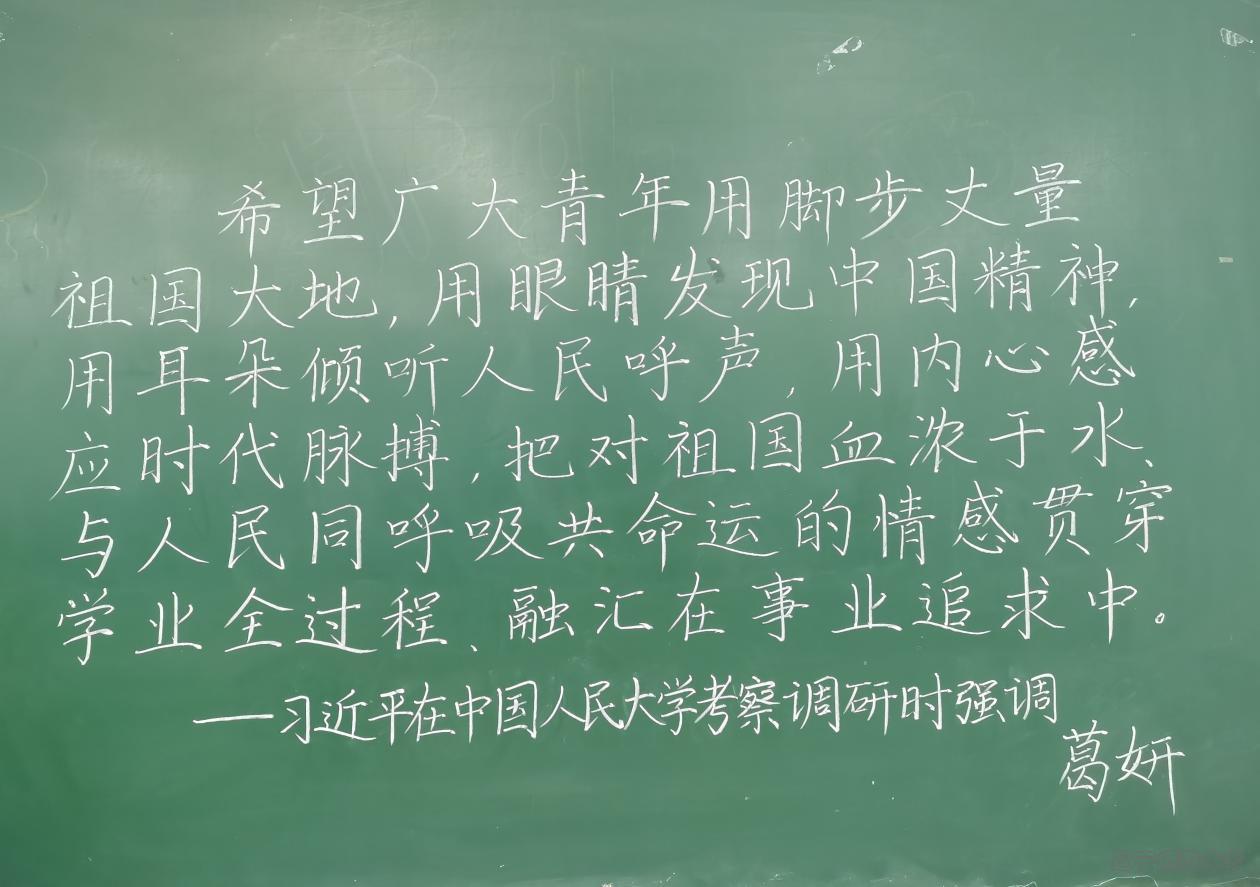 希望广大青年用脚步丈量
祖国大地,用眼睛发现中国精神,
用耳朵倾听人民呼声,用内心感
应时代脉搏,把对祖国血浓于水、
与人民同呼吸共命运的情感贯穿
学业全过程、融汇在事业追求中。
——习近平在中国人民大学考察调研时强调
葛妍